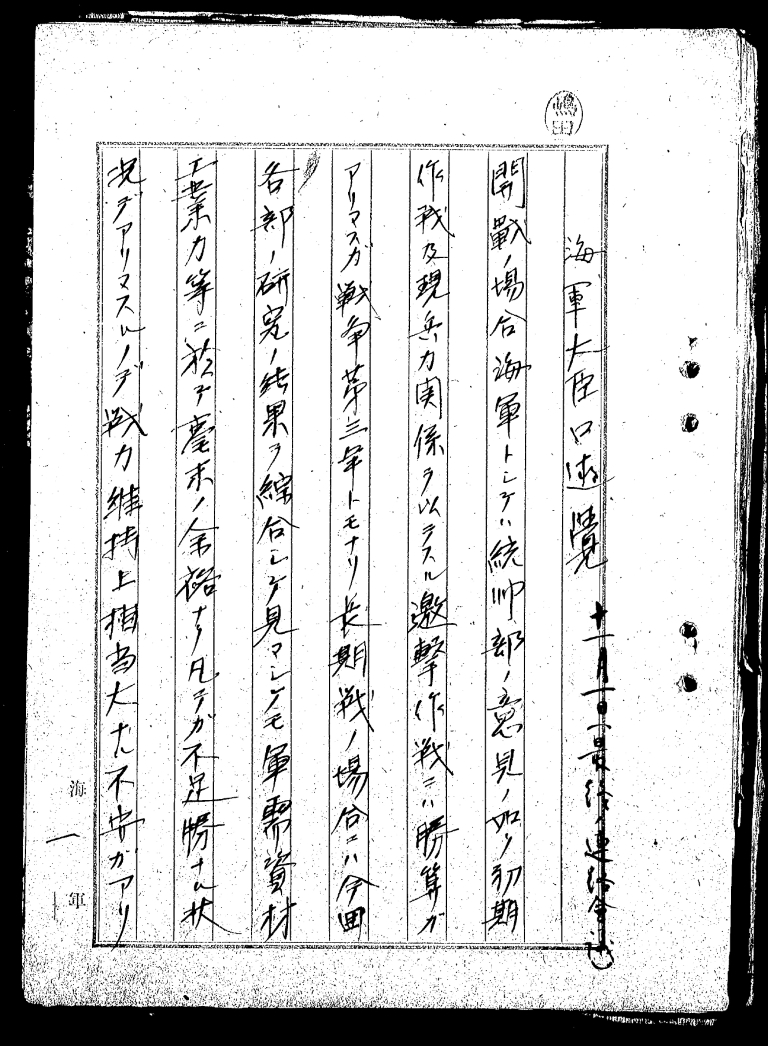 嶋田
海軍大臣口述覚 十一月一日(最終ノ連絡会議)
開戦ノ場合海軍トシテハ統帥部ノ意見ノ如ク初期
作戦及現兵力関係ヲ以テスル邀撃作戦ニハ勝算ガ
アリマスガ戦争第三年トモナリ長期戦ノ場合ニハ今回
各部ノ研究ノ結果ヲ綜合シテ見マシテモ軍需資材
工業力等ニ於テ毫末ノ余裕ナク凡テガ不足勝ナル状
況デアリマスルノデ戦力維持上相当大ナル不安ガアリ
海軍